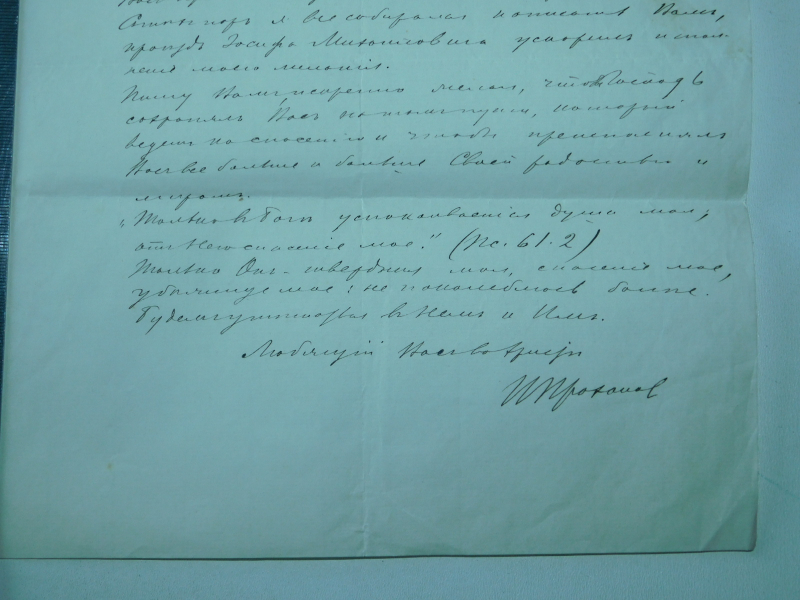 Съ тѣхъ поръ я все собирался написать Вамъ,
пріѣздъ Іосифа Михайловича ускорилъ испол-
неніе моего желанія.
Вамъ искренно желаю, чтобъ Господь
сохранялъ Васъ на томъ пути, который
ведетъ ко спасенію и чтобы преисполнялъ
Васъ все больше и больше Своей радостью и
миромъ.
„Только въ Богѣ успокаивается душа моя;
отъ Него спасеніе мое." (Пс. 61.2)
Только Онъ - твердыня моя, спасеніе мое,
убѣжище мое: не поколеблюсь болѣе.
Будемъ въ Немъ и Имъ.
Любящій Васъ во Христѣ
И Прохановъ